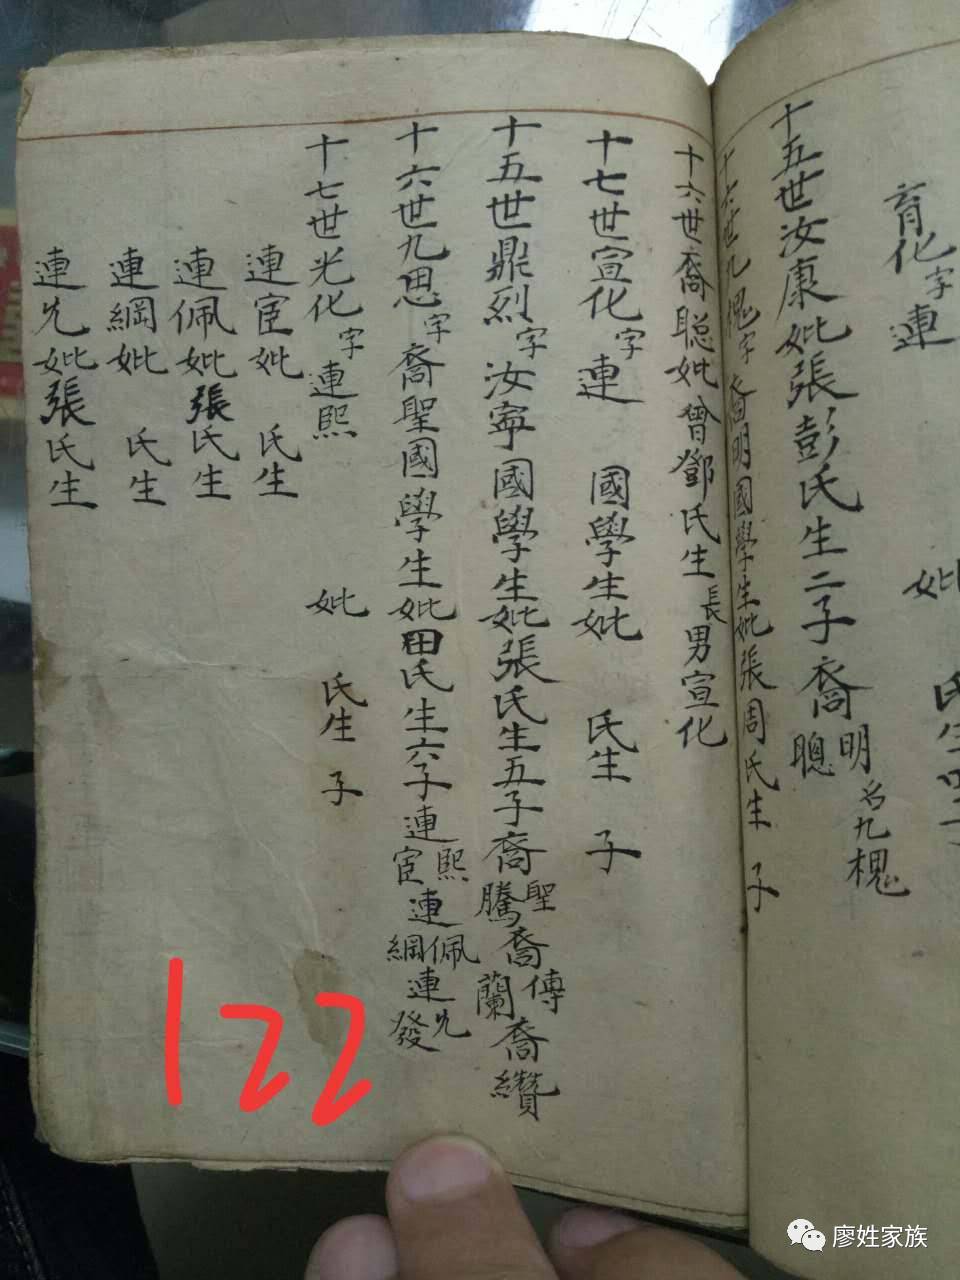 育化字連
妣
氏生
十五世汝康妣張彭氏生二子裔明聰
名九槐
十六世九槐字裔明國學生妣張周氏生 子
十六世裔聪妣曾鄧氏生長男宣化
十七世宣化字連 國學生妣 氏生 子
十五世鼎烈字汝寧國學生妣張氏生五子裔聖騰裔傳蘭裔纘
十六世九思字裔聖國學生妣田氏生六子連熙宦連佩綱連允發
十七世光化字連熙 妣 氏生 子
連宦妣 氏生
連佩妣張氏生
連綱妣 氏生
連允妣張氏生
122
廖姓家族